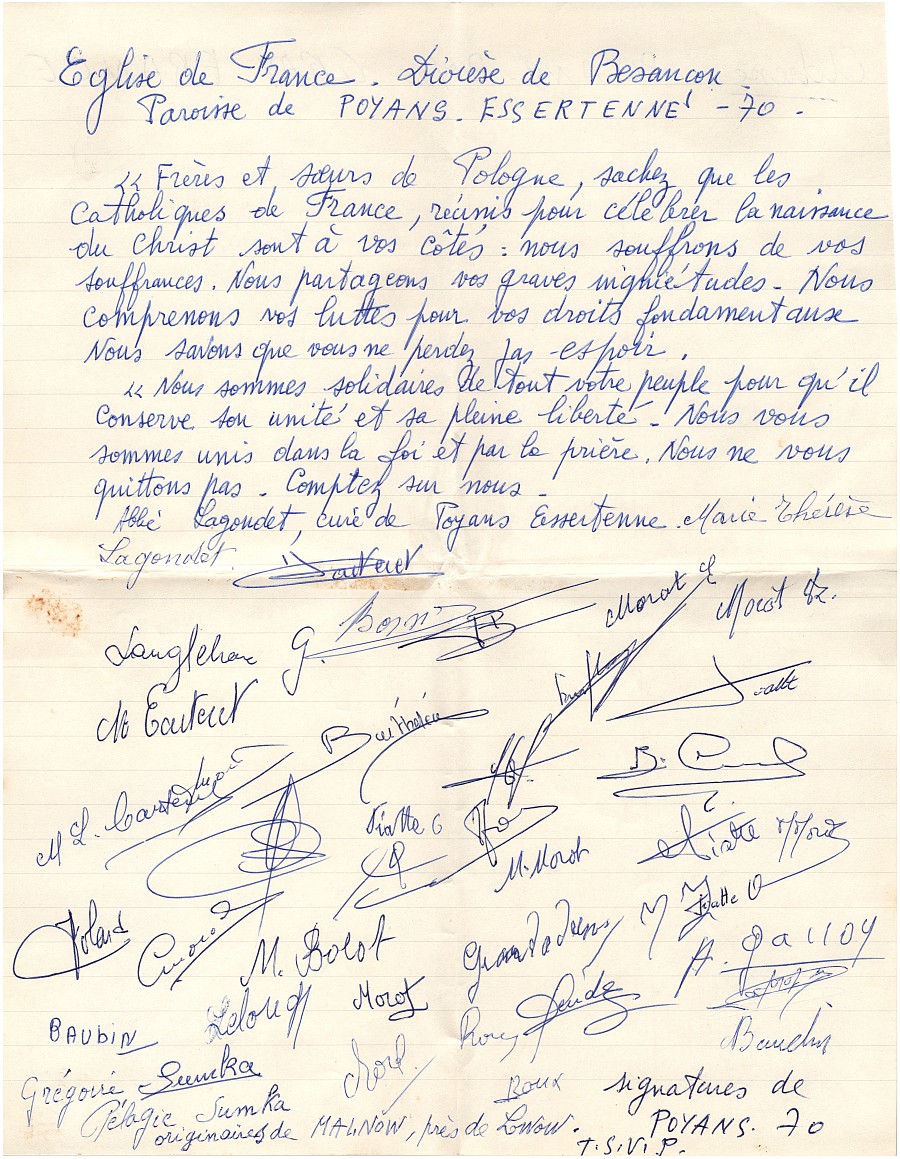 Eglise de France. Diocèse de Besançon
Paroisse de POYANS. ESSERTENNE - 70 -
« Frères et sœurs de Pologne, sachez que les
Catholiques de France, réunis pour célébrer la naissance
du Christ sont à vos côtés : nous souffrons de vos
souffrances. Nous partageons vos graves inquiétudes - Nous
comprenons vos luttes pour vos droits fondamentaux
Nous savons que vous ne perdez pas espoir.
« Nous sommes solidaires de tout votre peuple pour qu'il
conserve son unité et sa pleine liberté - Nous vous
sommes unis dans la foi et par la prière. Nous ne vous
quittons pas - Comptez sur nous -
Abbé Lagondet, curé de Poyans Essertenne. Marie Thérèse
Lagondet.
G. Morot Morot
M
M L.
B.
Viatte G
M. Morot
Viatte
Volard
M. Bolot
Viatte
A. Galloy
BAUBIN Lelong Morot
Baudin
Grégoire Sumka
Roux
signatures de
Pélagie Sumka
POYANS. 70
originaires de MALINOW, près de Lwow.
T.S.V.P.